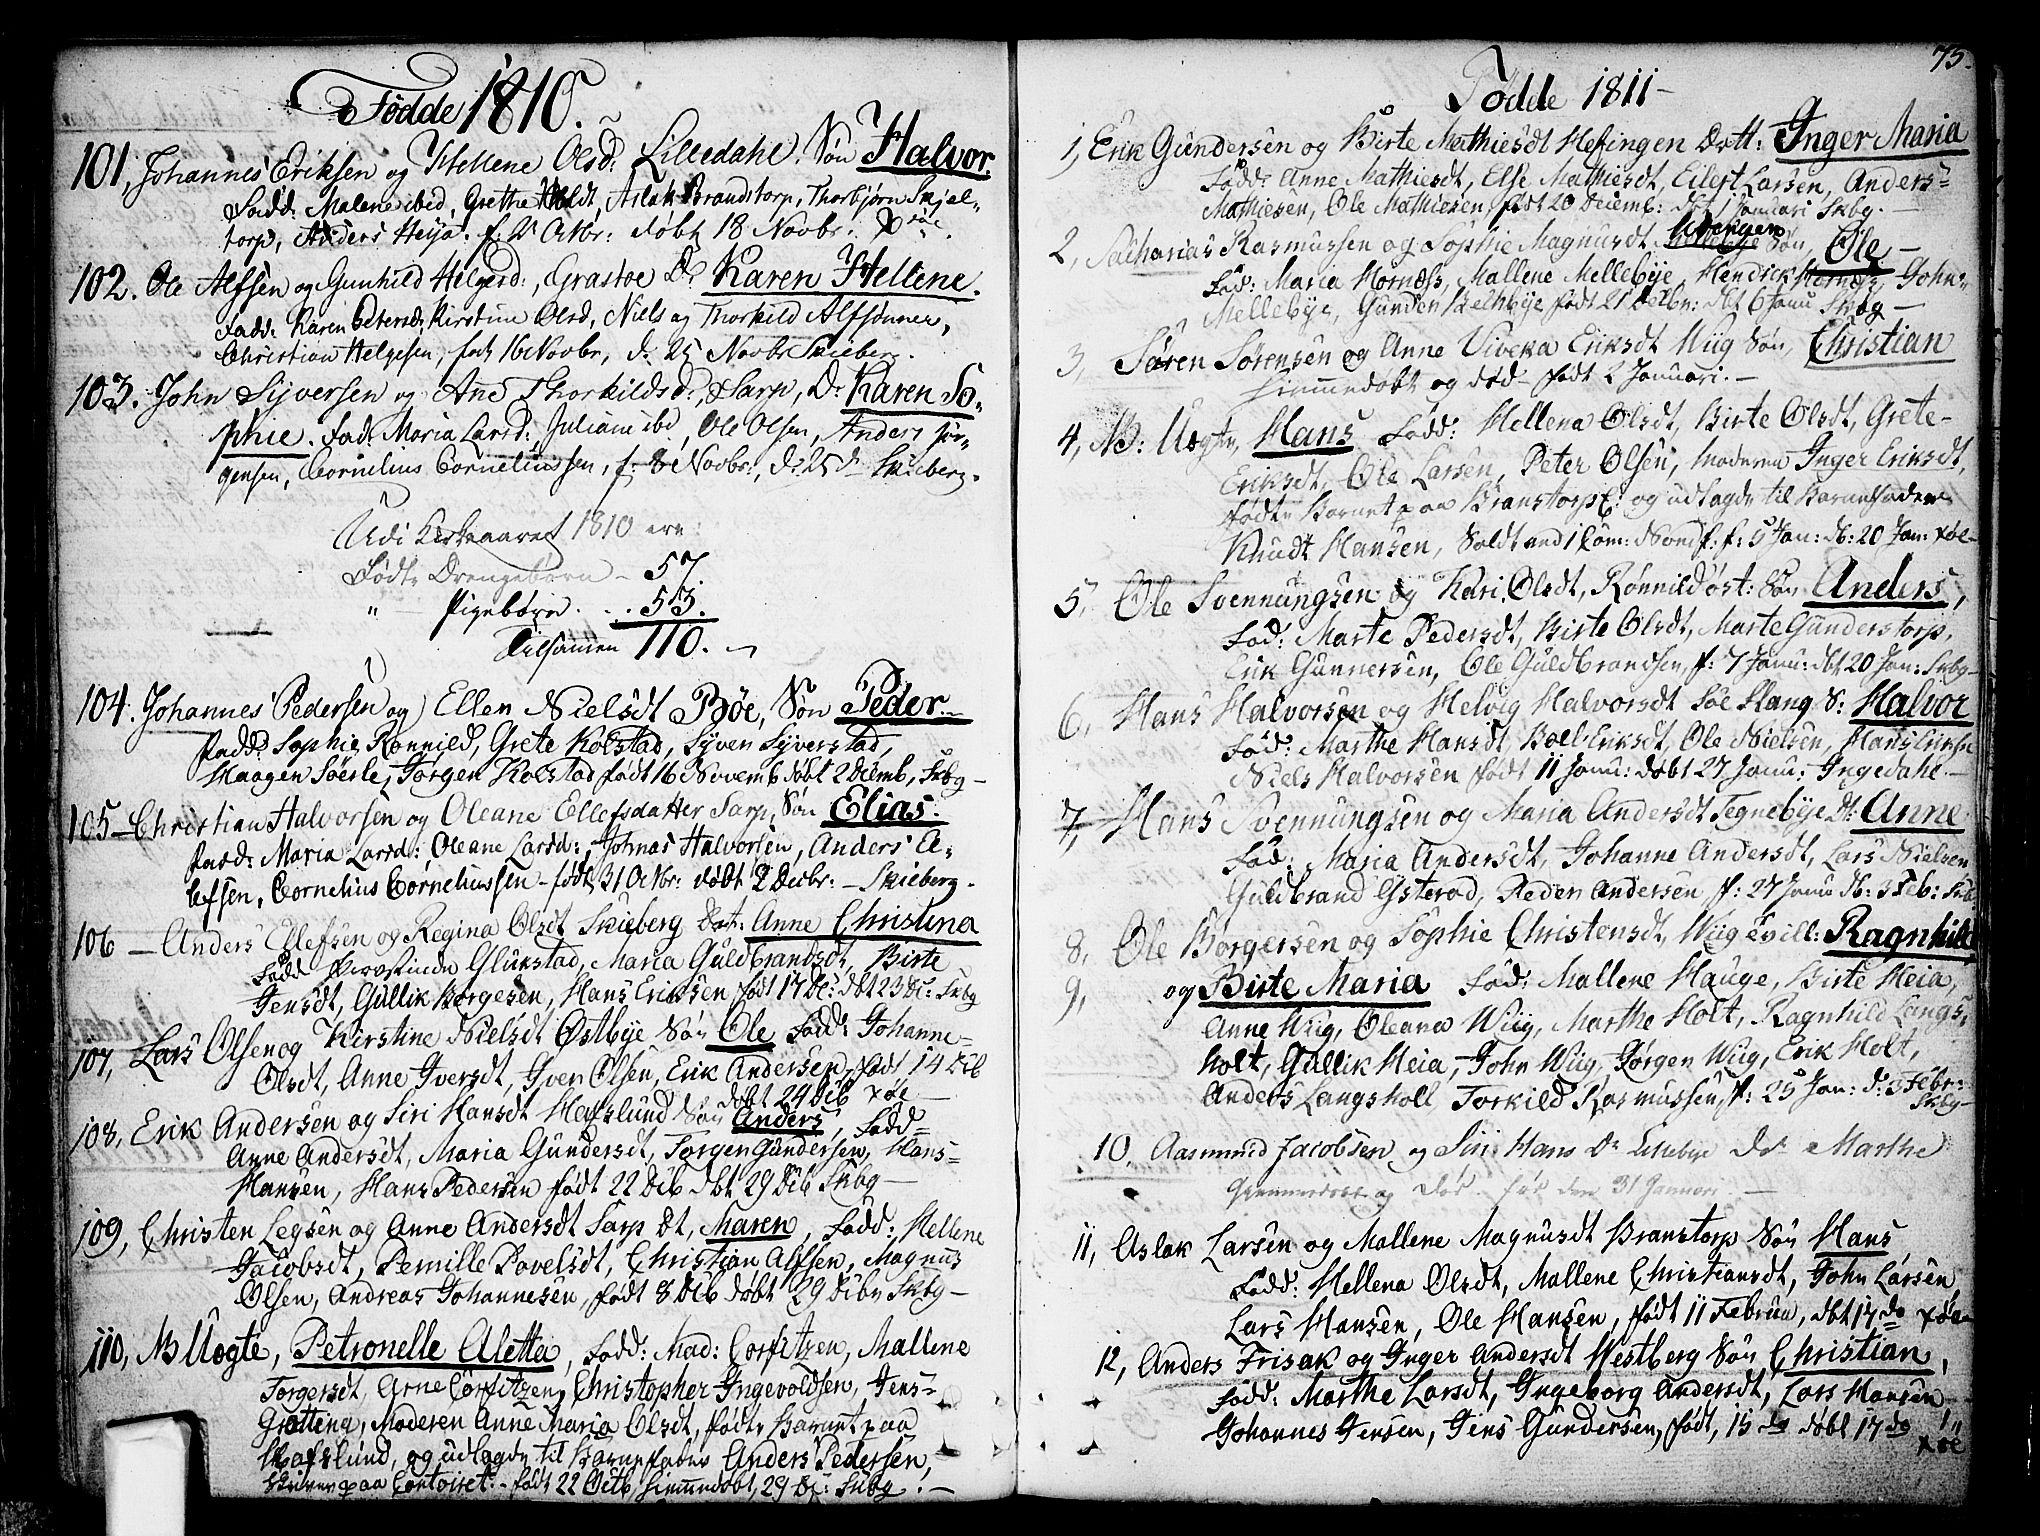 Fødde 1810.
101, Johannes Eriksen og Hellene Olsd: Lilledahl. Søn Halvor.
Fadd: Malene ibid, Grethe Holdt, Aslak Brandstorp, Thorbjørn Skjel-
torp, Anders Heja. f: 21 Octbr: døbt 18 Novbr.
102. Ole Alfsen og Gunhild Helgesd:, Grastoe Dr Karen Hellene.
Fadd: Karen Pedersd: Kirstine Olsd, Niels og Thorkild Alfsønner,
Christian Helgesen, født 16 Novbr, d: 25 Novbr Skieberg.
103. John Sijversen og Ane Thorkildsd:, Sarp, Dr Karen So-
phie. Fad: Maria Larsd:, Juliane ibd, Ole Olsen, Anders Jør-
gensen, Cornelius Corneliussen, f: 8 Novbr:, d: 25 d Skieberg.
Udi Kirkeaaret 1810 ere:
Fødte Drengebørn - 57.
" - Pigebørn . . . 53.
Tilsamen 110.
104. Johannes Pedersen og Ellen Nielsdt Bøe, Søn Peder.
Fadd: Sophie Rønnild, Grete Kolstad, Syven Syverstad,
Haagen Søerle, Jørgen Kolstad født 16 Novemb døbt 2 Decemb, Skbg -
105 - Christian Halvorsen og Oleane Ellefsdatter Sarp, Søn Elias.
Fadd: Maria Larsd:, Oleane Larsd:, Johnas Halvorsen, Anders E-
lefsen, Cornelius Corneliussen - født 31 Octbr: døbt 2 Decbr: - Skieberg.
106 - Anders Ellefsen og Regina Olsdt Skieberg Dat: Anne Christina
Fadd Glukstad, Maria Guldbrandsdt, Birte
Jensdt, Gullik Borgesen, Hans Eriksen født 17 De: dbt 23 De: Skbg
107, Lars Olsen og Kirstine Nielsdt Østbye Søn Ole Fadd: Johanne-
Olsdt, Anne Iversdt, Iven Olsen, Erik Andersen, født 14 Deb
døbt 24 Deb xøe -
108, Erik Andersen og Siri Hansdt Hafslund Søn Anders, Fadd=
Anne Andersdt, Maria Gundersdt, Jørgen Gundersen, Hans=
Hansen, Hans Pedersen født 22 Deb dbt 29 Deb Skbg -
109, Christen Legsen og Anne Andersdt Sarp Dt, Maren, Fadd: Hellene
Jacobsdt, Pernille Povelsdt, Christian Alfsen, Magnus
Olsen, Andreas Johannesen, født 8 Deb døbt 29 Debr Skbg -
110, NB Uægte, Petronelle Aletta, Fadd: Mad: Corfitzen, Mallene
Torgersdt, Arne Corfitzen, Christopher Ingevoldsen, Jens-
Grotting, Moderen Anne Maria Olsdt, fødte Barnet paa
Hafslund, og udlagde til Barnefader Anders Pedersen,
Skriver paa Contoiret - født 22 Octb, hiemmedøbt, 29 De: Skbg . -
75.
Fødde 1811 -
1, Erik Gundersen og Birte Mathiesdt Hefingen Datt: Inger Maria
Fadd: Anne Mathiesdt, Else Mathiesdt, Eilert Larsen, Anders=
Mathiesen, Ole Mathiesen, født 20 Decemb: dbt 1 Januari Skbg. -
2, Zacharias Rasmussen og Sophie Magnusdt Søn, Ole, -
Fad: Maria Hornæs, Mallene Mellebye, Hendrick Hornæs, John=
Mellebye, Gunder født 21 Decbr: dbt 6 Janu Skbg -
3, Søren Sørensen og Anne Viveka Eriksdt Wiig Søn, Christian
hiemmedøbt og død - født 2 Januari. -
4, NB: Uægte, Hans Fadd: Hellena Olsdt, Birte Olsdt, Grete-
Eriksdt, Ole Larsen, Peter Olsen, moderen Inger Eriksdt,
fødte Barnet paa Branstorp E: og udlagde til Barnefader
Knudt Hansen, Soldt and 1 Com: f: 5 Jan: db: 20 Jan: xøe -
5, Ole Svennungsen og Kari Olsdt, Rønnild øst: Søn Anders,
Fad: Marte Pedersdt, Birte Olsdt, Marte Gunderstorp,
Erik Gunnersen, Ole Guldbrandsen, f: 7 Janu: dbt 20 Jan: Skbg -
6, Hans Halvorsen og Helvig Halvorsdt Søe Hang S: Halvor
Fad: Marthe Hansdt, Boel Eriksdt, Ole Nielsen, Hans Eriksn
Niels Halvorsen født 11 Janu: døbt 27 Janu: Ingedahl -
7, Hans Svennungsen og Maria Andersdt Tegnebye Dt: Anne
Fad: Maria Andersdt, Johanne Andersdt, Lars Nielsen
Guldbrand Ysterød, Reden Andersen, f: 27 Janu db: 3 Feb: Skb
8, Ole Børgersen og Sophie Christensdt, Wiig tvill: Ragnhild
9, og Birte Maria Fad: Mallene Hauge, Birte Heia,
Anne Wiig, Oleana Wiig, Marthe Holt, Ragnhild Langs,
holt, Gullik Heia, John Wiig, Jørgen Wiig, Erik Holt,
Anders Langsholt Torkild Rasmussen, f: 25 Jan: d: 3 Febr:
Skbg -
10, Aasmund Jacobsen og Siri Hans Dr Lillebye Dr Marthe
hiemmedøbt og død. før den 31 Januari. -
11, Aslak Larsen og Mallene Magnusdt Branstorp Søn Hans
Fadd: Hellena Olsdt, Mallene Christiansdt, John Larsen
Lars Hansen, Ole Hansen, født 11 Februa, dbt 17 do xøe -
12, Anders Frisak og Inger Andersdt Westberg Søn Christian,
Fadd: Marthe Larsdt, Ingeborg Andersdt, Lars Hansen
Johannes Jensen, Jens Gundersen, født, 15 do døbt 17 do
xøe